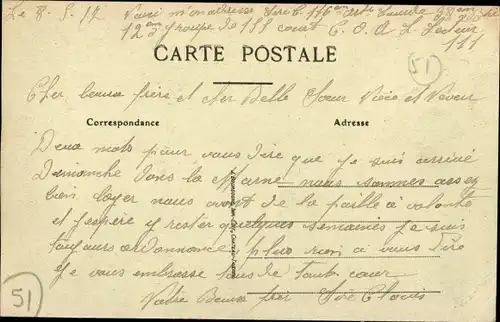 Le 8.5.17 Voici m'on adresse
12e groupe de 155 court C. O. A. L. Secteur
111
CARTE POSTALE
51
Cher beau frère et cher Belle Soeur Nièce et Neveu
Correspondance
Adresse
Deux mots pour vous dire que je suis arrivé
Dimanche dans la Marne nous sommes assez
bien loger nous avont de la paille à volonté
et j'espère y rester quelques semaines je suis
toujours ordonnance plus rien a vous dire
Je vous embrasse tous de tout coeur
Votre Beau frère Clovis
51